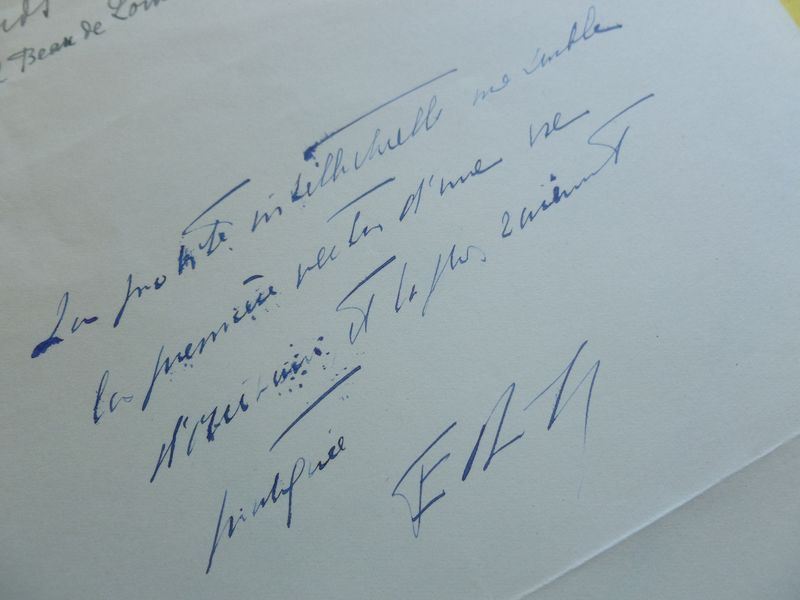 Beau de
La probité intellectuelle me semble
la première vertu d'une vie
d'écrivain et la plus rarement
pratiquée